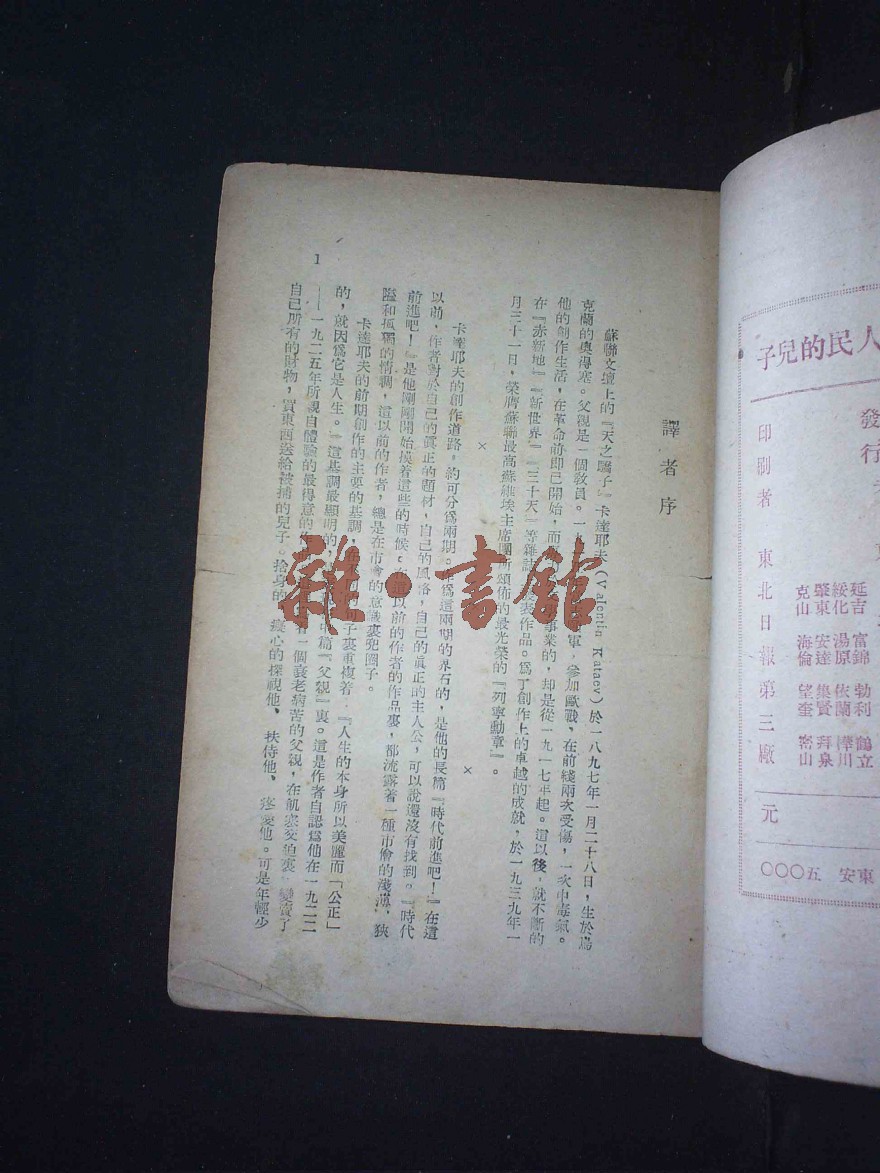 譯者序
蘇聯文壇上的『天之驕子』卡達耶夫(Valentin Kataev)於一八九七年一月二十八日，生於烏
克蘭的奧得塞。父親是一個教員。一九 軍，參加歐戰，在前綫兩次受傷，一次中毒氣。
他的創作生活，在革命前即已開始，而 事業的，却是從一九一七年起。這以後，就不斷的
在『赤新地』『新世界』『三十天』等雜誌 表作品。爲了創作上的卓越的成就，於一九三九年一
月三十一日，榮膺蘇聯最高蘇維埃主席團所頒佈的最光榮的『列寧勳章』。
× ×
卡達耶夫的創作道路，約可分爲兩期。 爲這兩期的界石的，是他的長篇『時代前進吧！』在這
以前，作者對於自己的眞正的題材，自己的風格，自己的眞正的主人公，可以說還沒有找到。『時代
前進吧！』是他剛剛開始摸着這些的時候。在這以前的作者的作品裏，都流露着一種市儈的淺薄，狹
隘和孤獨的情調，這以前的作者，總是在市儈的意識裏兜圈子。
卡達耶夫的前期創作的主要的基調， 句子裏重複着：『人生的本身所以美麗而「公正」
的，就因爲它是人生。』這基調最顯明的， 中篇『父親』裏。這是作者自認爲他在一九二二
——一九二五年所親自體驗的最得意的 着一個衰老病苦的父親，在飢寒交迫裏，變賣了
自己所有的財物，買東西送給被捕的兒子。捨身的，癡心的探視他、扶侍他、疼愛他。可是年輕少
1
雜·書館
人民的兒子
發行
印刷者 東北日報第三廠
延吉 富錦 勃利 鶴立
綏化 湯原 依蘭 樺川
肇東 安達 集賢 拜泉
克山 海倫 望奎 密山
元
東安 五〇〇〇